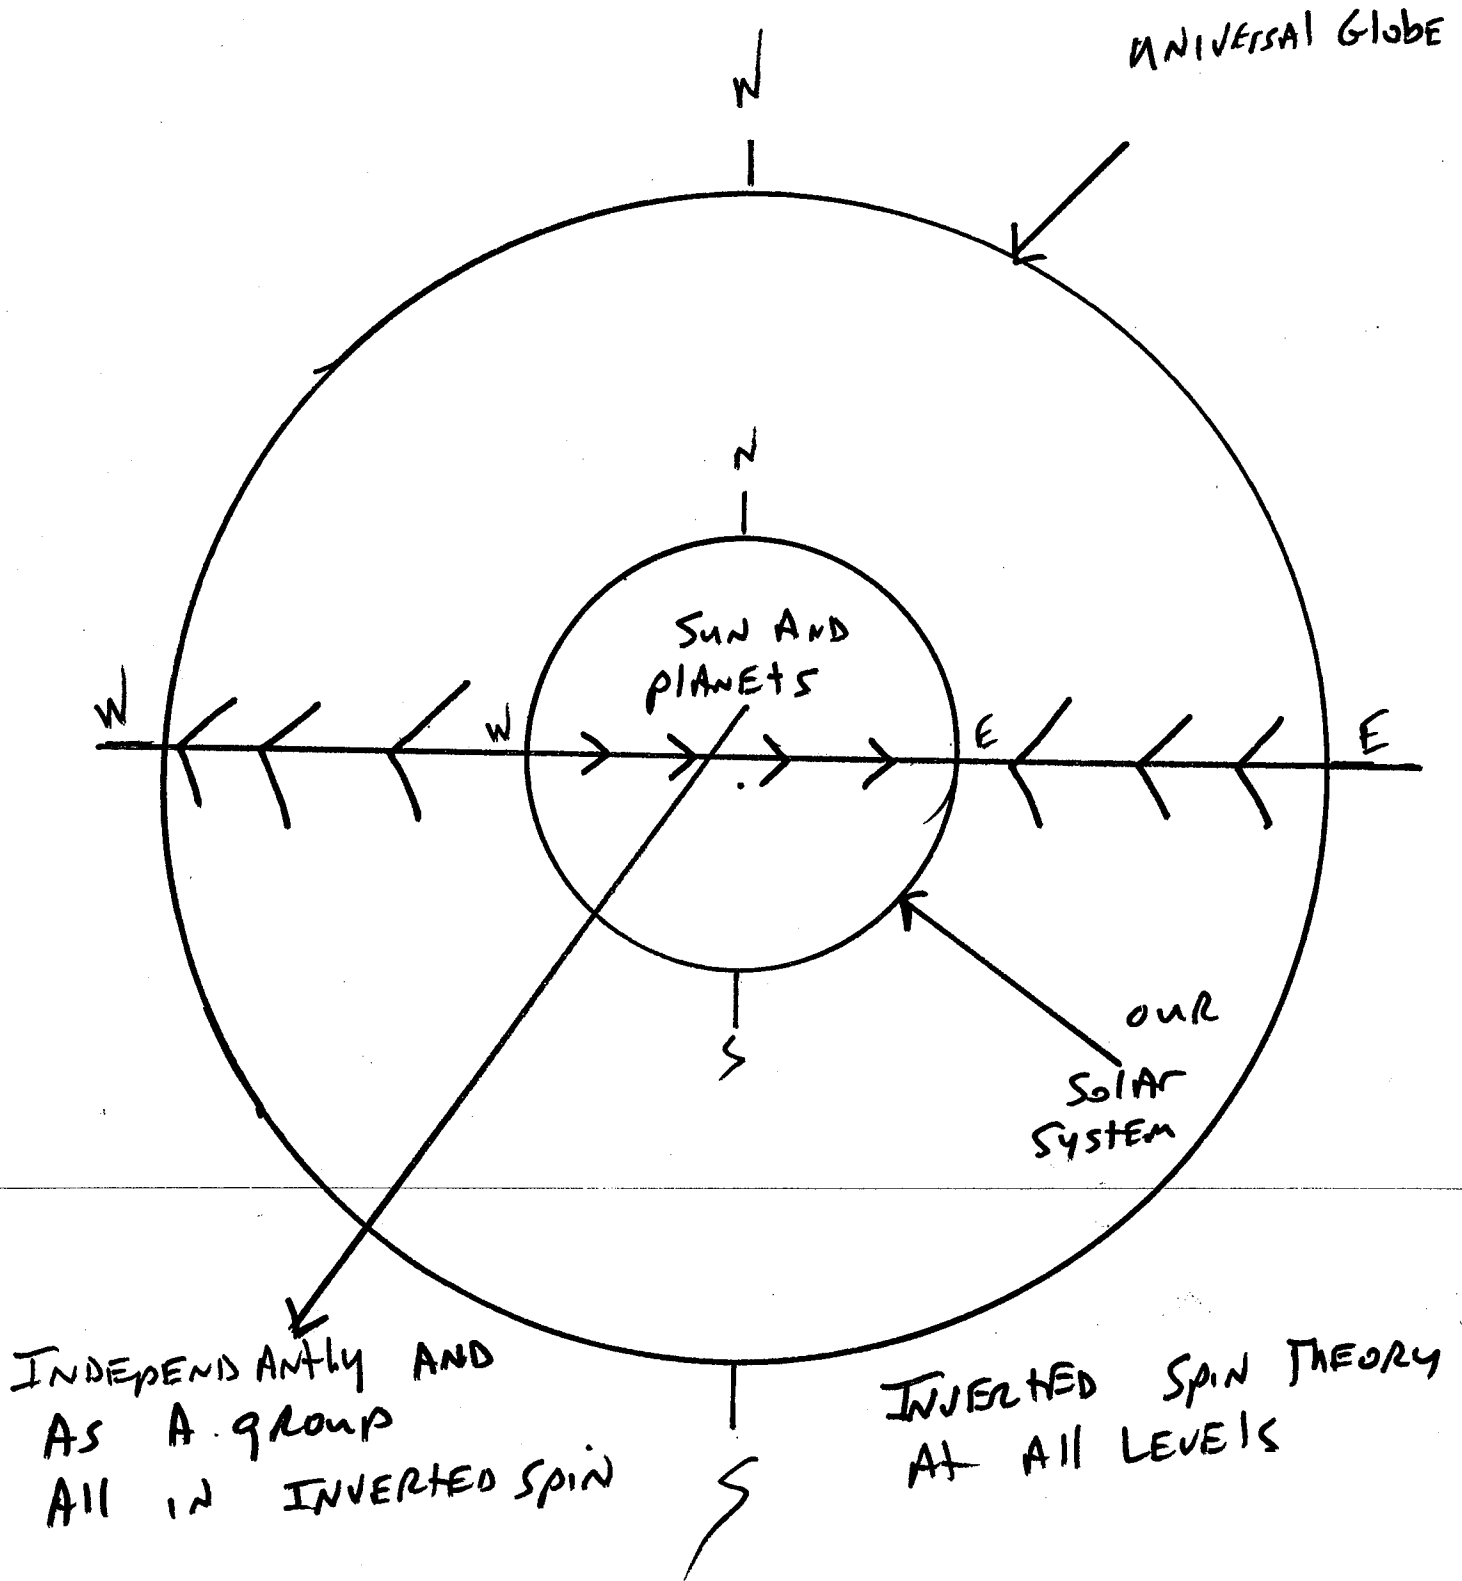 UNIVERSAL GlobE
N
N
SUN AND
plANEtS
W
W
E
E
S
OUR
SolAr
SystEM
INDEPENDANtly AND
As A group
All iN INVERtED SpiN
INVERtED SpiN ThEORy
At All LEVElS
S